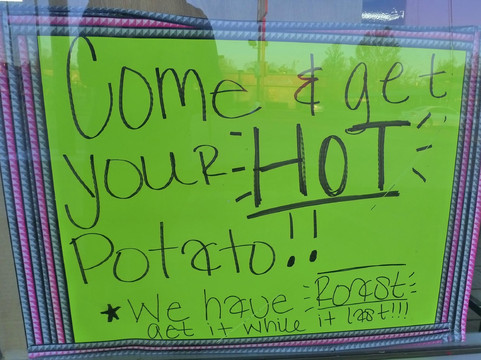 Come & get
your HOT
Potato!!
* We have Roast
get it while it last!!!